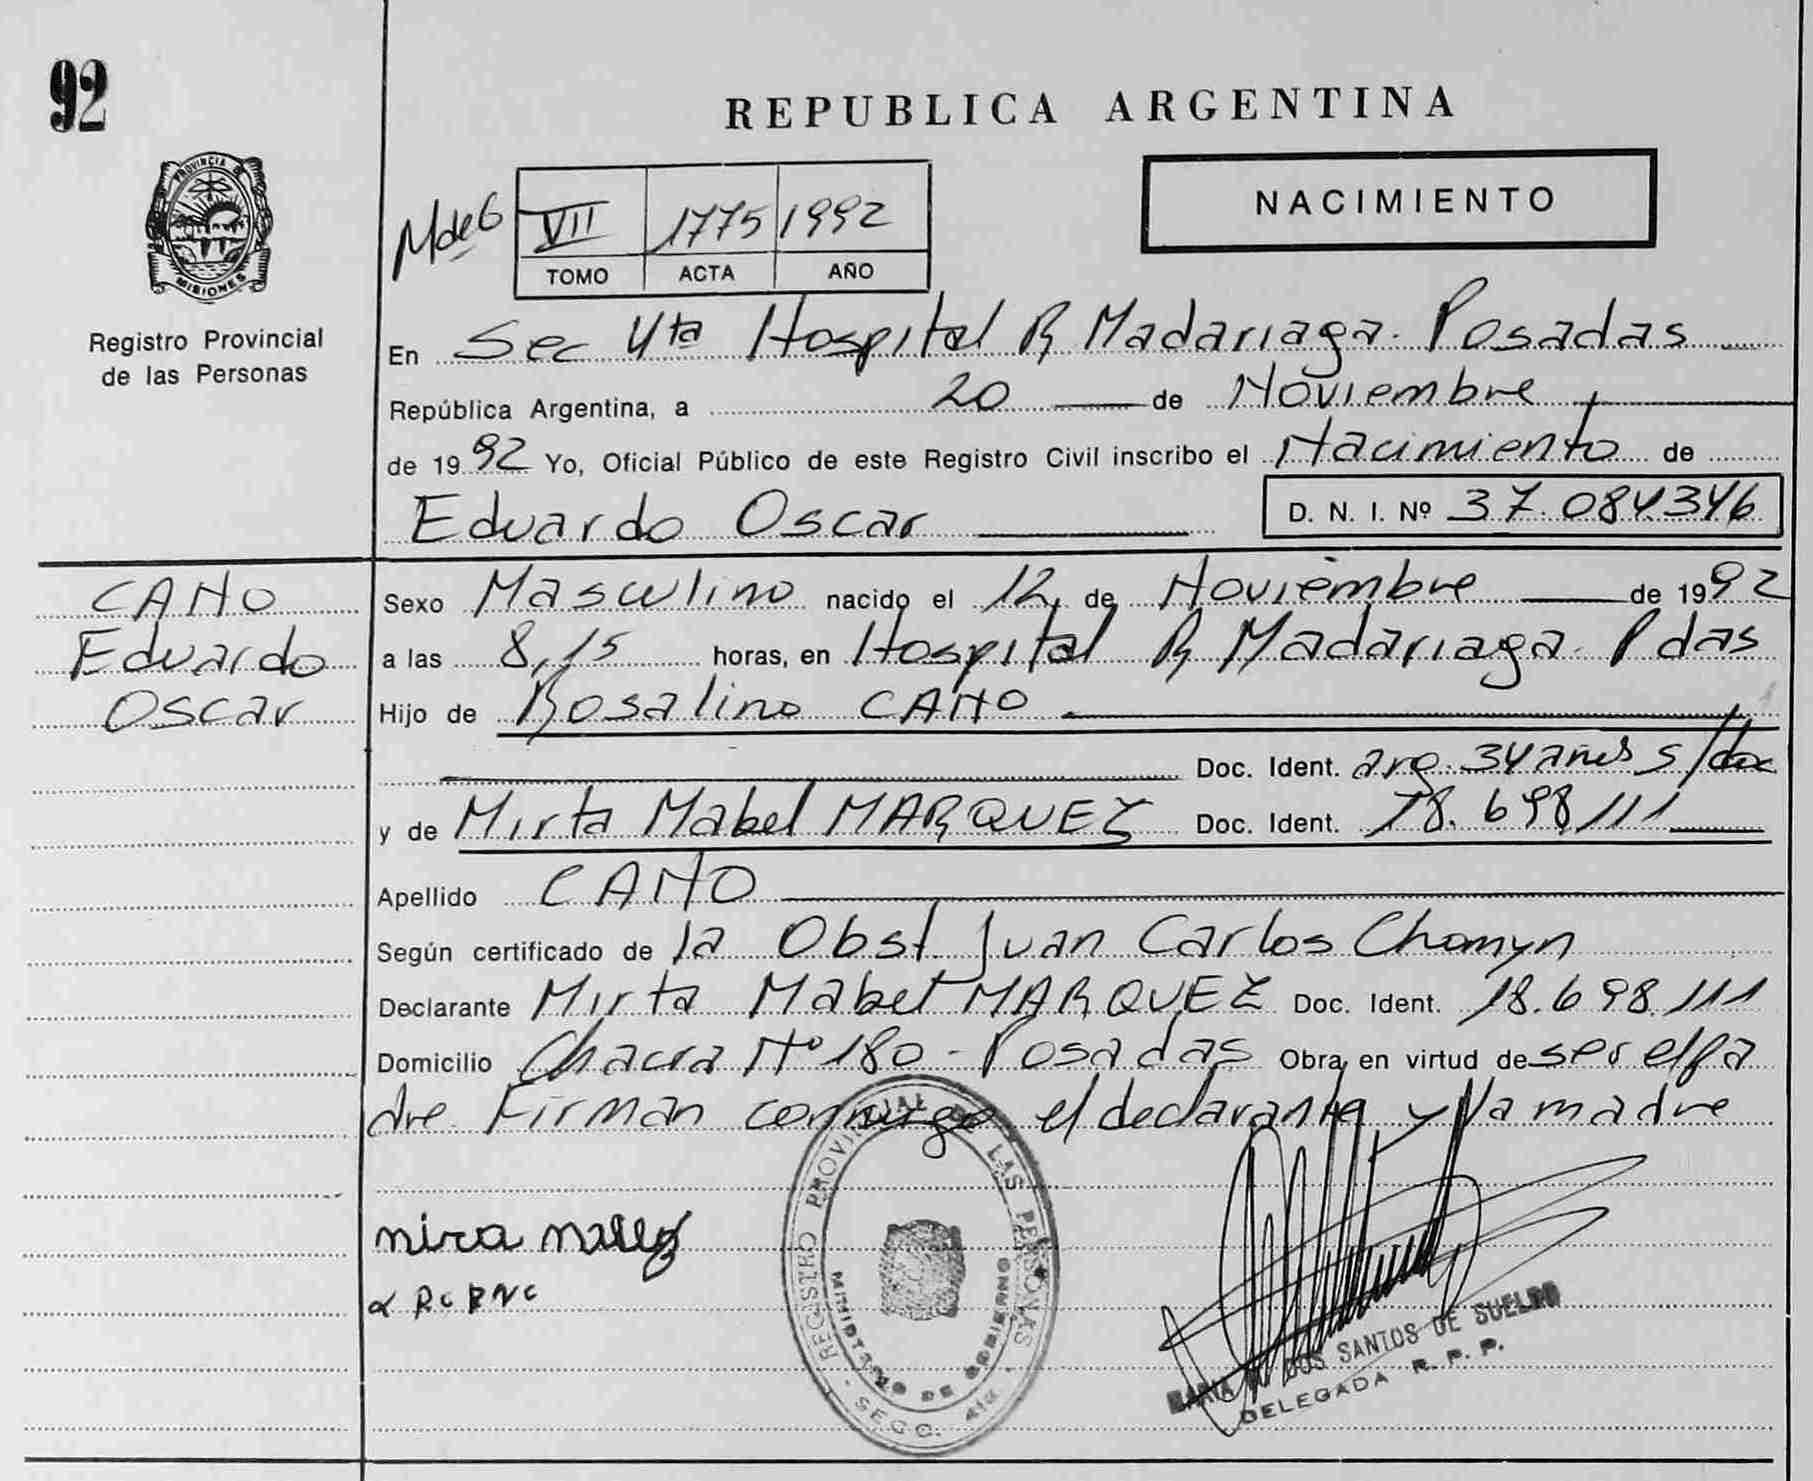 92
REPUBLICA ARGENTINA
PROVINCIA D
MISIONES
Registro Provincial
de las Personas
MdeG
VII 1775 1992
TOMO ACTA AÑO
NACIMIENTO
En Sec 4ta Hospital R Madariaga. Posadas
República Argentina, a 20 de Noviembre
de 1992 Yo, Oficial Público de este Registro Civil inscribo el Nacimiento de
Eduardo Oscar D. N. I. Nº 37.084.346
CANO
Eduardo
Oscar
Sexo Masculino nacido el 12 de Noviembre de 1992
a las 8,15 horas, en Hospital R Madariaga. Pdas
Hijo de Rosalino CANO
Doc. Ident. arg. 34 años s/doc
y de Mirta Mabel MARQUEZ Doc. Ident. 18.698.111
Apellido CANO
Según certificado de la Obst. Juan Carlos Chomyn
Declarante Mirta Mabel MARQUEZ Doc. Ident. 18.698.111
Domicilio Chacra Nº 180 - Posadas Obra, en virtud de ser el pa
dre. Firman conmigo el declarante y la madre
REGISTRO PROVINCIAL DE LAS PERSONAS
MINISTERIO DE GOBIERNO
SECC. 4ta.
MARIA DOS SANTOS DE SUELDO
DELEGADA R. P. P.